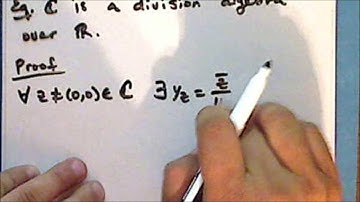 Eg. ℂ is a division algebra
over ℝ.
Proof
∀ z ≠ (0,0) ∈ ℂ ∃ 1/z = z̄